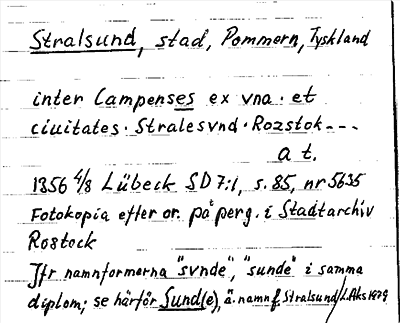 Stralsund, stad, Pommern, Tyskland
inter Campenses ex vna. et
ciuitates. Stralesvnd. Rozstok---
a t.
1356 4/8 Lübeck SD 7:1, s. 85, nr 5635
Fotokopia efter or. på perg. i Stadtarchiv
Rostock
Jfr namnformerna "svnde", "sunde" i samma
diplom; se härför Sund(e), ä. namn f. Stralsund/L.Aks 1979